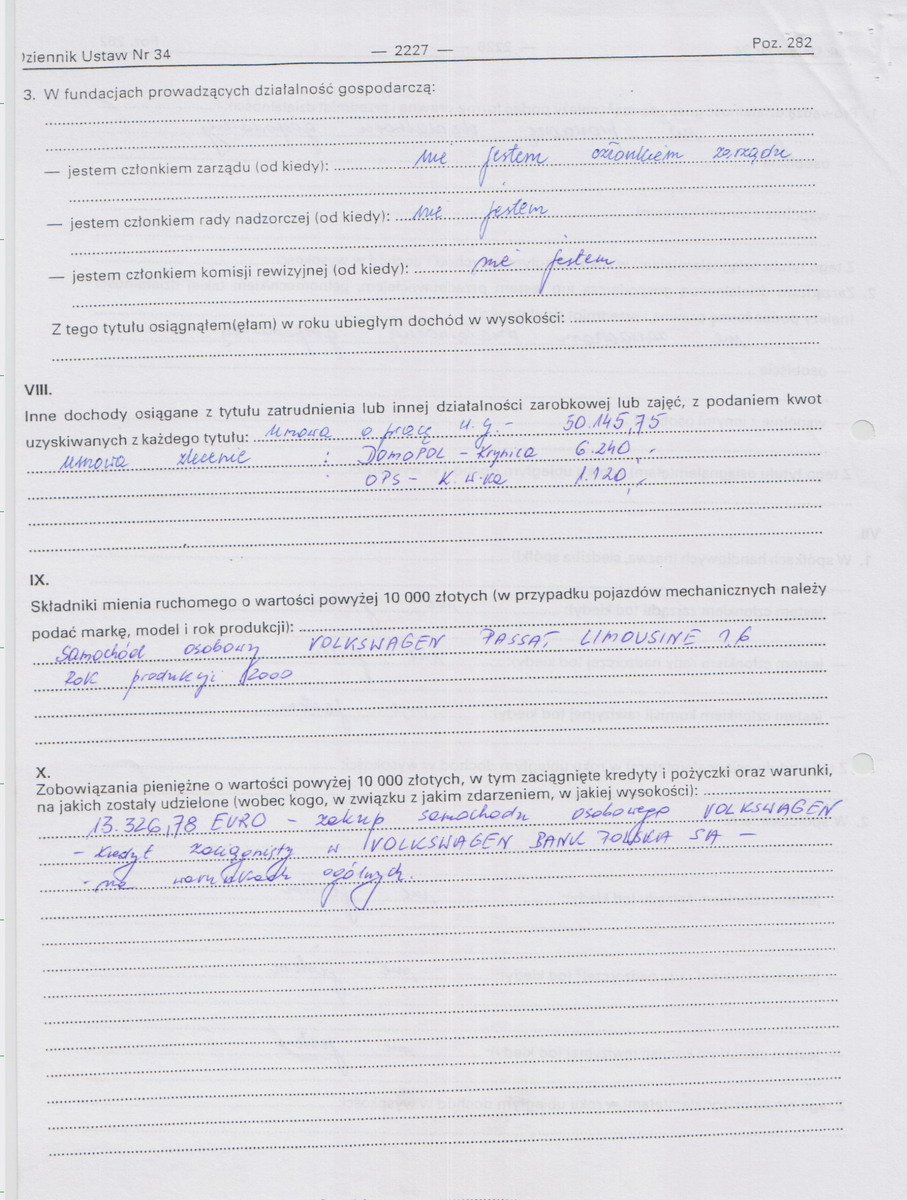 Dziennik Ustaw Nr 34 — 2227 — Poz. 282
3. W fundacjach prowadzących działalność gospodarczą:
— jestem członkiem zarządu (od kiedy): nie jestem członkiem zarządu
— jestem członkiem rady nadzorczej (od kiedy): nie jestem
— jestem członkiem komisji rewizyjnej (od kiedy): nie jestem
Z tego tytułu osiągnąłem(ęłam) w roku ubiegłym dochód w wysokości:
VIII.
Inne dochody osiągane z tytułu zatrudnienia lub innej działalności zarobkowej lub zajęć, z podaniem kwot
uzyskiwanych z każdego tytułu: umowa o pracę u.g. - 50.145,75
umowa zlecenie : DOMOPOL - Krynica 6.240,-
OPS - K. W-ka 1.120,-
IX.
Składniki mienia ruchomego o wartości powyżej 10 000 złotych (w przypadku pojazdów mechanicznych należy
podać markę, model i rok produkcji):
Samochód osobowy VOLKSWAGEN PASSAT LIMOUSINE 1,6
Rok produkcji 2000
X.
Zobowiązania pieniężne o wartości powyżej 10 000 złotych, w tym zaciągnięte kredyty i pożyczki oraz warunki,
na jakich zostały udzielone (wobec kogo, w związku z jakim zdarzeniem, w jakiej wysokości):
13.326,78 EURO - zakup samochodu osobowego VOLKSWAGEN
- Kredyt zaciągnięty w VOLKSWAGEN BANK POLSKA SA —
- na warunkach ogólnych.